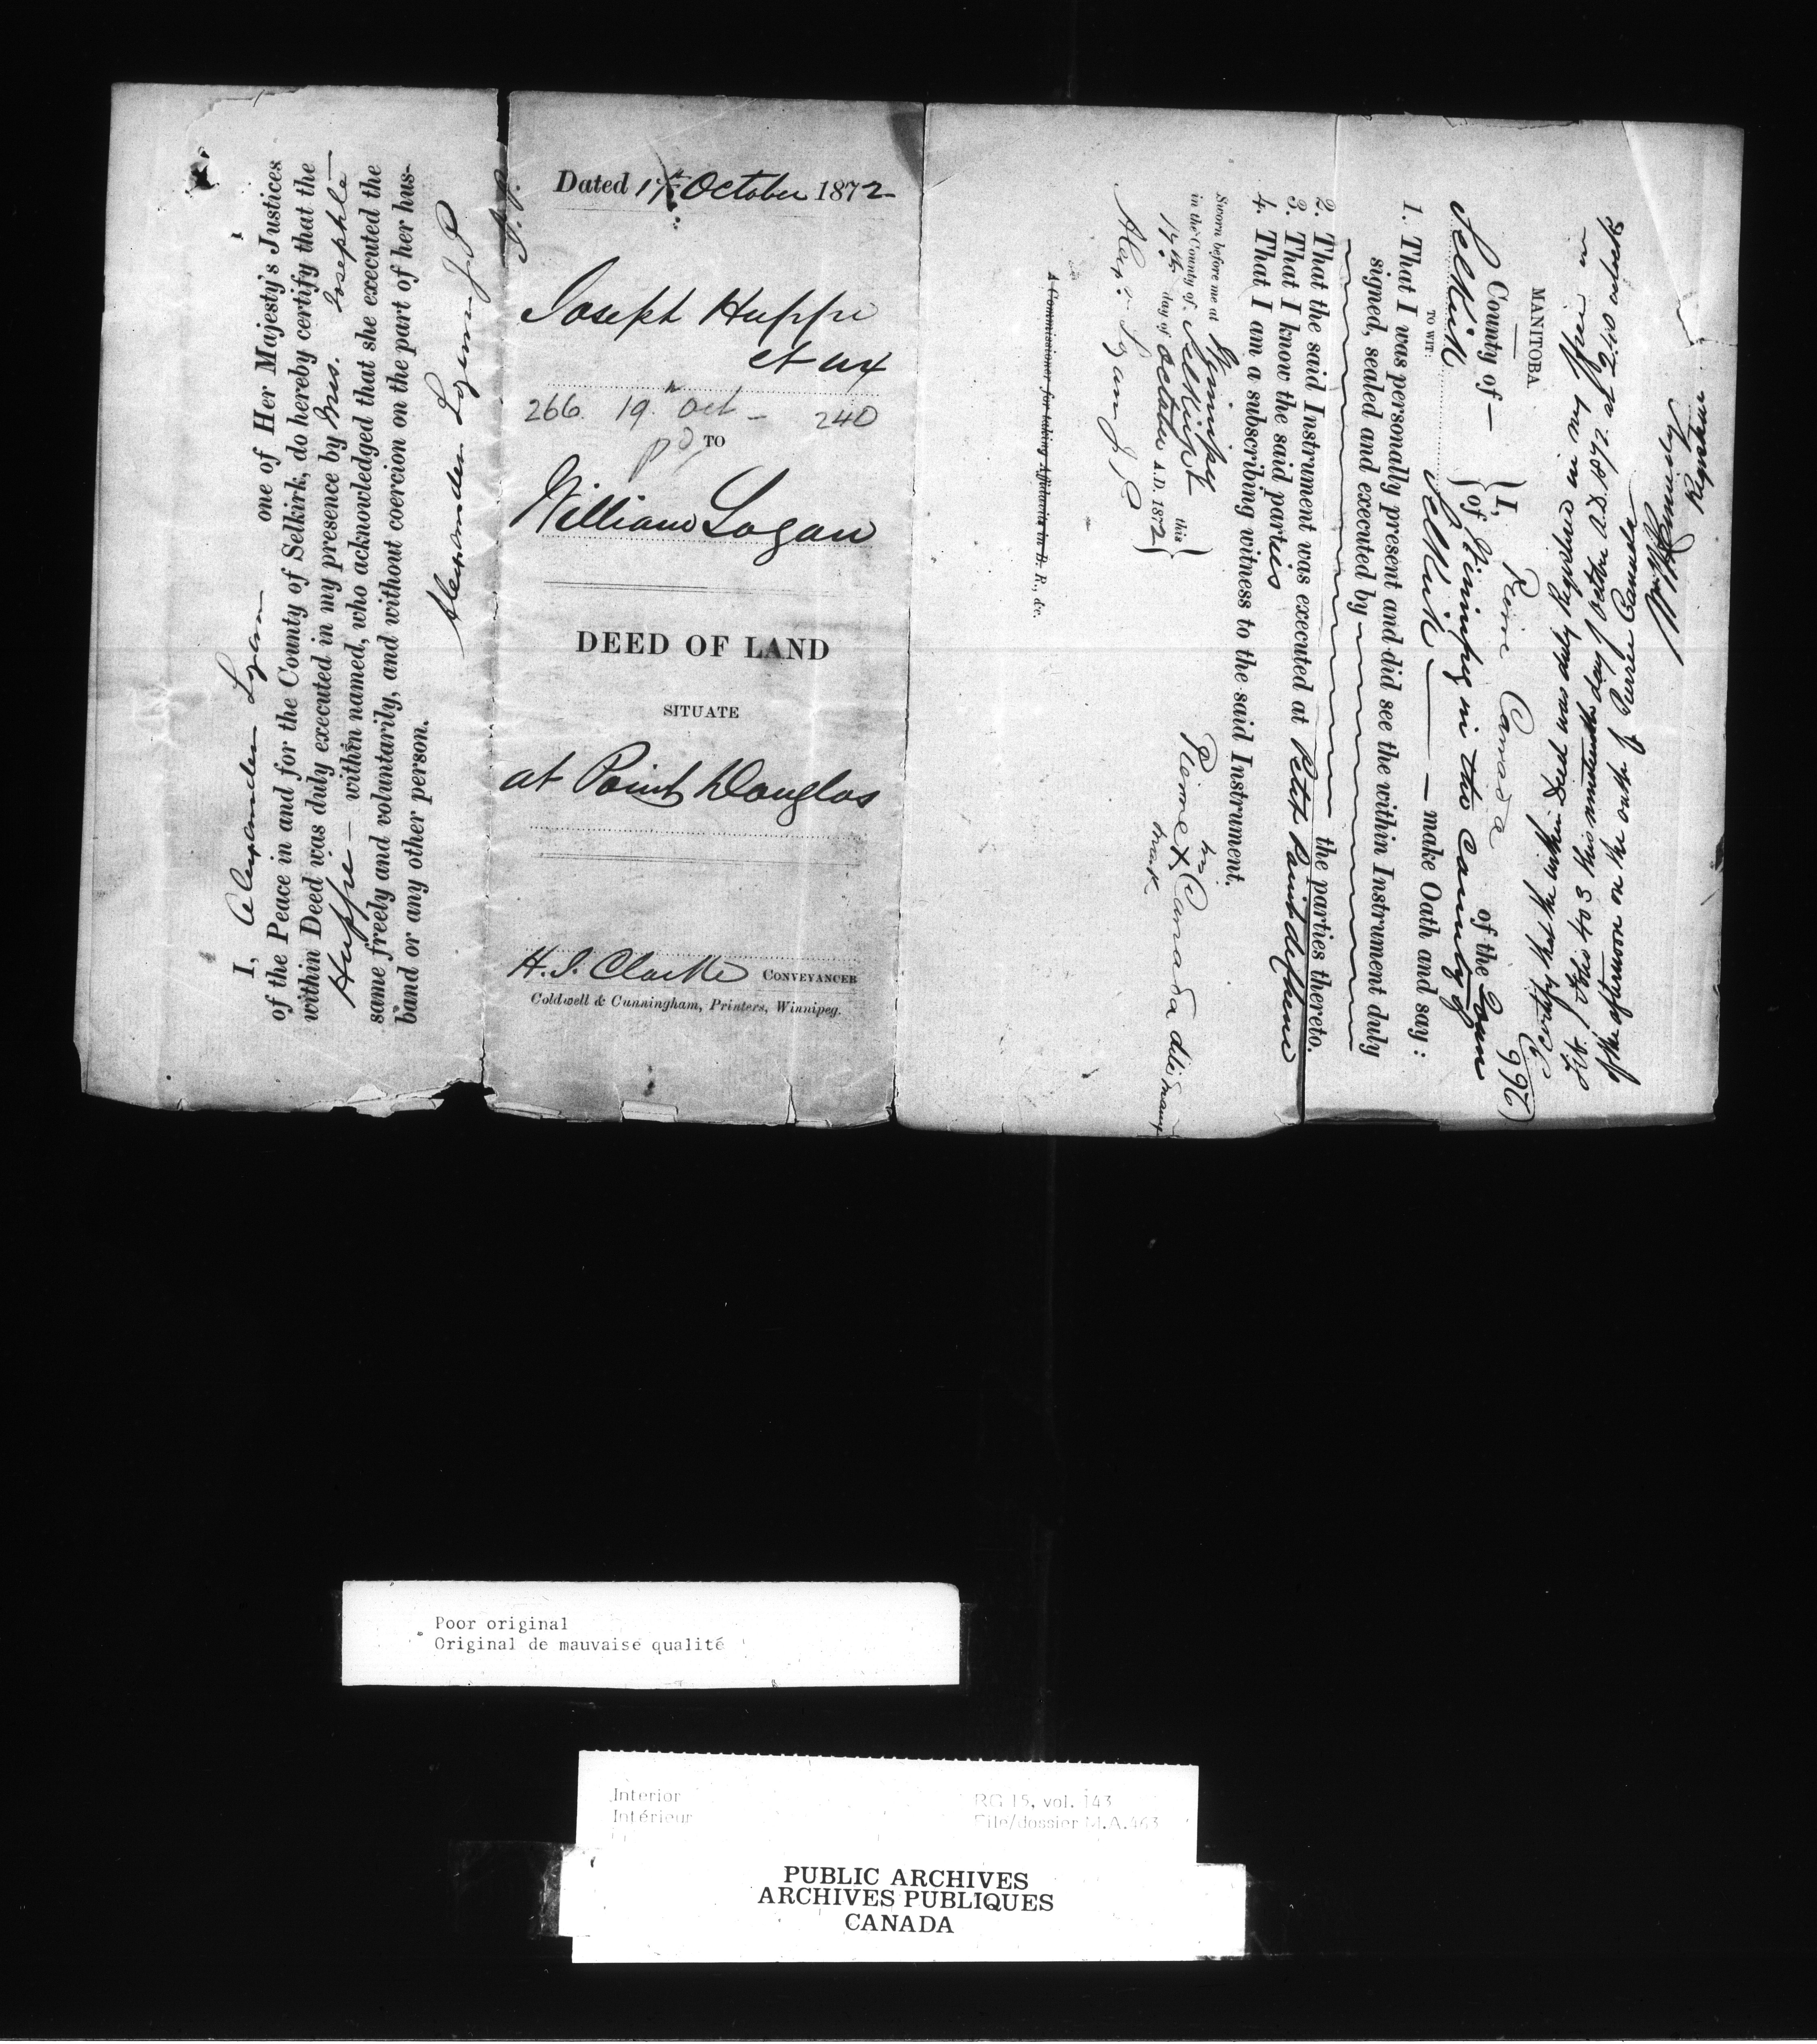 I, Alexander Logan one of Her Majesty's Justices
of the Peace in and for the County of Selkirk, do hereby certify that the
within Deed was duly executed in my presence by Mrs. Josephte
Huppe — within named, who acknowledged that she executed the
same freely and voluntarily, and without coercion on the part of her hus-
band or any other person.
Alexander Logan J.P
J.P.
Dated 17th October 1872
Joseph Huppe
et ux
266. 19th Oct — 240
pd
TO
William Logan
DEED OF LAND
SITUATE
at Point Douglas
H.J. Clarke CONVEYANCER
Coldwell & Cunningham, Printers, Winnipeg.
Wm N Kennedy
Registrar
I certify that the within Deed was duly Registered in my Office in
Lib. 1 Folio 403 this nineteenth day of October A.D. 1872. at 2.40 o'clock
of the afternoon on the oath of Pierre Canada
996
MANITOBA
County of —
Selkirk
TO WIT:
I, Reine Canada
of Winnipeg in the County of
Selkirk — of the
— make Oath and say:
1. That I was personally present and did see the within Instrument duly
signed, sealed and executed by
the parties thereto.
2. That the said Instrument was executed at Petite Pointe de Chene
3. That I know the said parties
4. That I am a subscribing witness to the said Instrument.
Sworn before me at Winnipeg
in the County of Selkirk this
17th day of October A.D. 1872
Alex. Logan J P
A Commissioner for taking Affidavits in B. R., &c.
his
Reine X Canada
mark
Poor original
Original de mauvaise qualité
Interior
Intérieur
RG 15, vol. 143
File/dossier M.A.463
PUBLIC ARCHIVES
ARCHIVES PUBLIQUES
CANADA